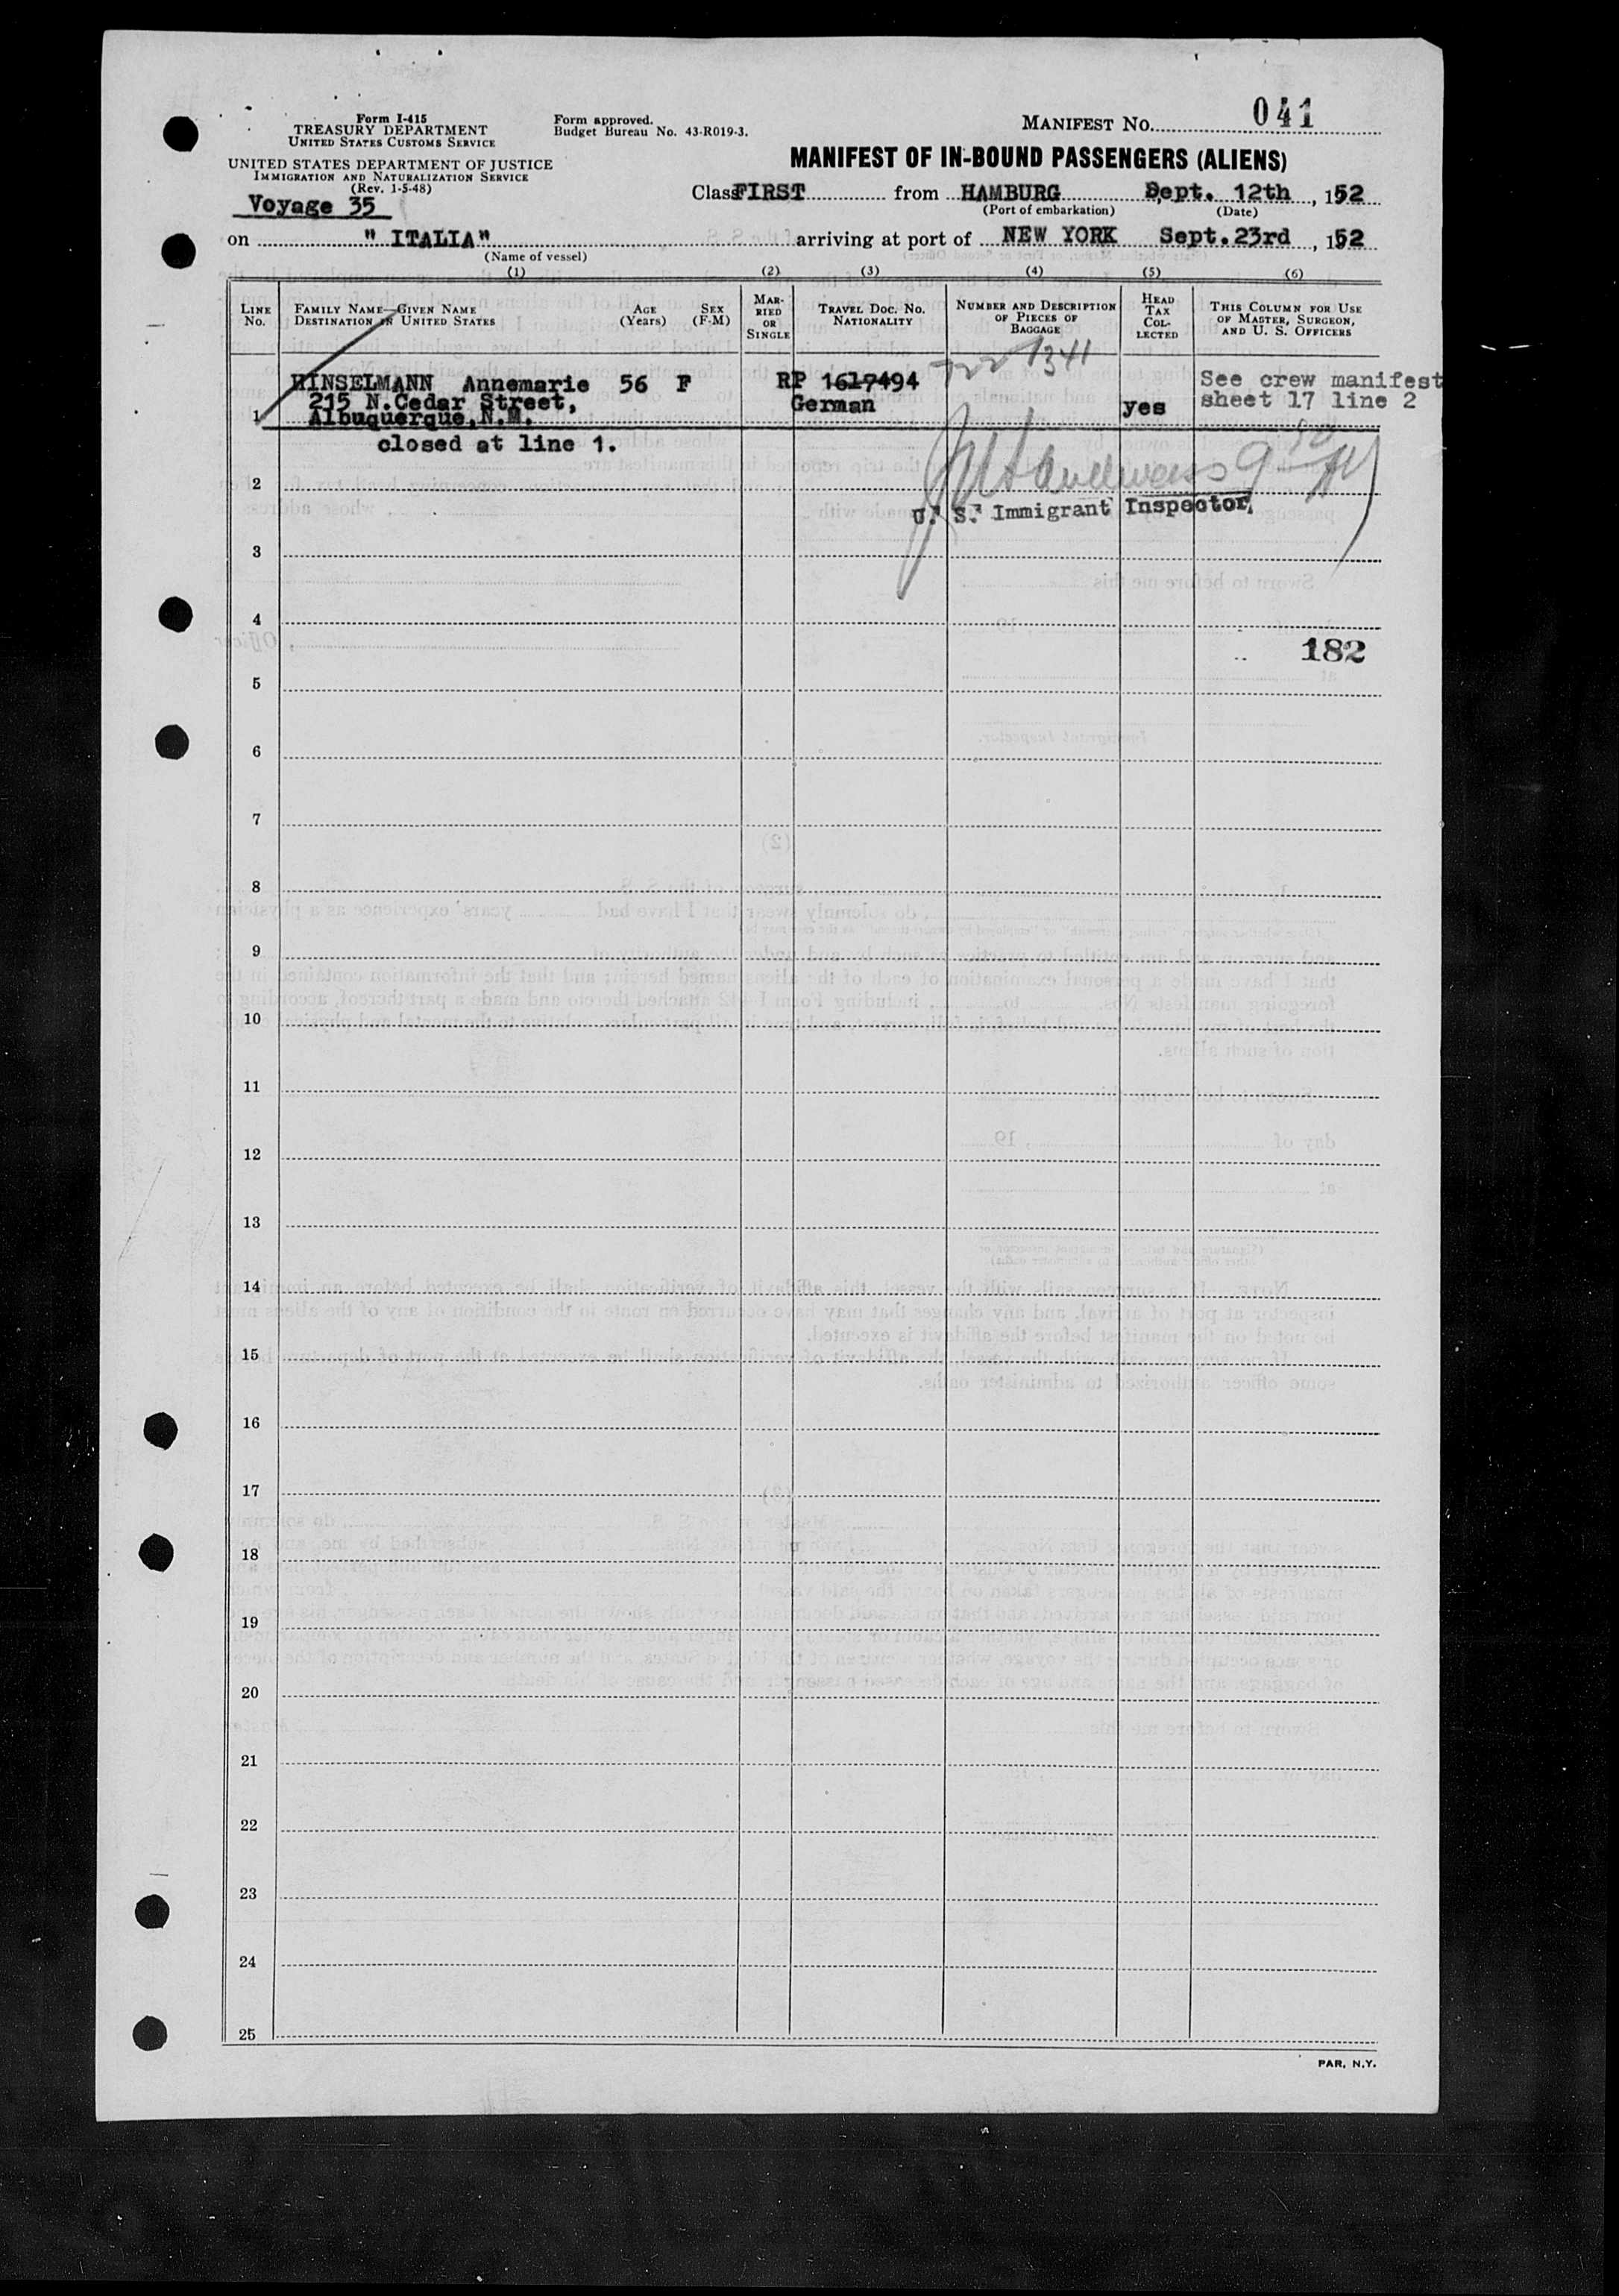 Form I-415
TREASURY DEPARTMENT
UNITED STATES CUSTOMS SERVICE
UNITED STATES DEPARTMENT OF JUSTICE
IMMIGRATION AND NATURALIZATION SERVICE
(Rev. 1-5-48)
Form approved.
Budget Bureau No. 43-R019-3.
MANIFEST NO. 041
MANIFEST OF IN-BOUND PASSENGERS (ALIENS)
Voyage 35
Class FIRST from HAMBURG Sept. 12th, 152
(Port of embarkation) (Date)
on " ITALIA" arriving at port of NEW YORK Sept.23rd, 152
(Name of vessel)
(1) (2) (3) (4) (5) (6)
LINE No.
FAMILY NAME—GIVEN NAME
DESTINATION IN UNITED STATES
AGE (Years)
SEX (F-M)
MARRIED OR SINGLE
TRAVEL DOC. NO.
NATIONALITY
NUMBER AND DESCRIPTION OF PIECES OF BAGGAGE
HEAD TAX COLLECTED
THIS COLUMN FOR USE OF MASTER, SURGEON, AND U. S. OFFICERS
1341
HINSELMANN Annemarie 56 F RP 1617494 See crew manifest
215 N.Cedar Street, German yes sheet 17 line 2
1 Albuquerque,N.M.
closed at line 1.
2
U. S. Immigrant Inspector.
3
4
182
5
6
7
8
9
10
11
12
13
14
15
16
17
18
19
20
21
22
23
24
25
PAR, N.Y.